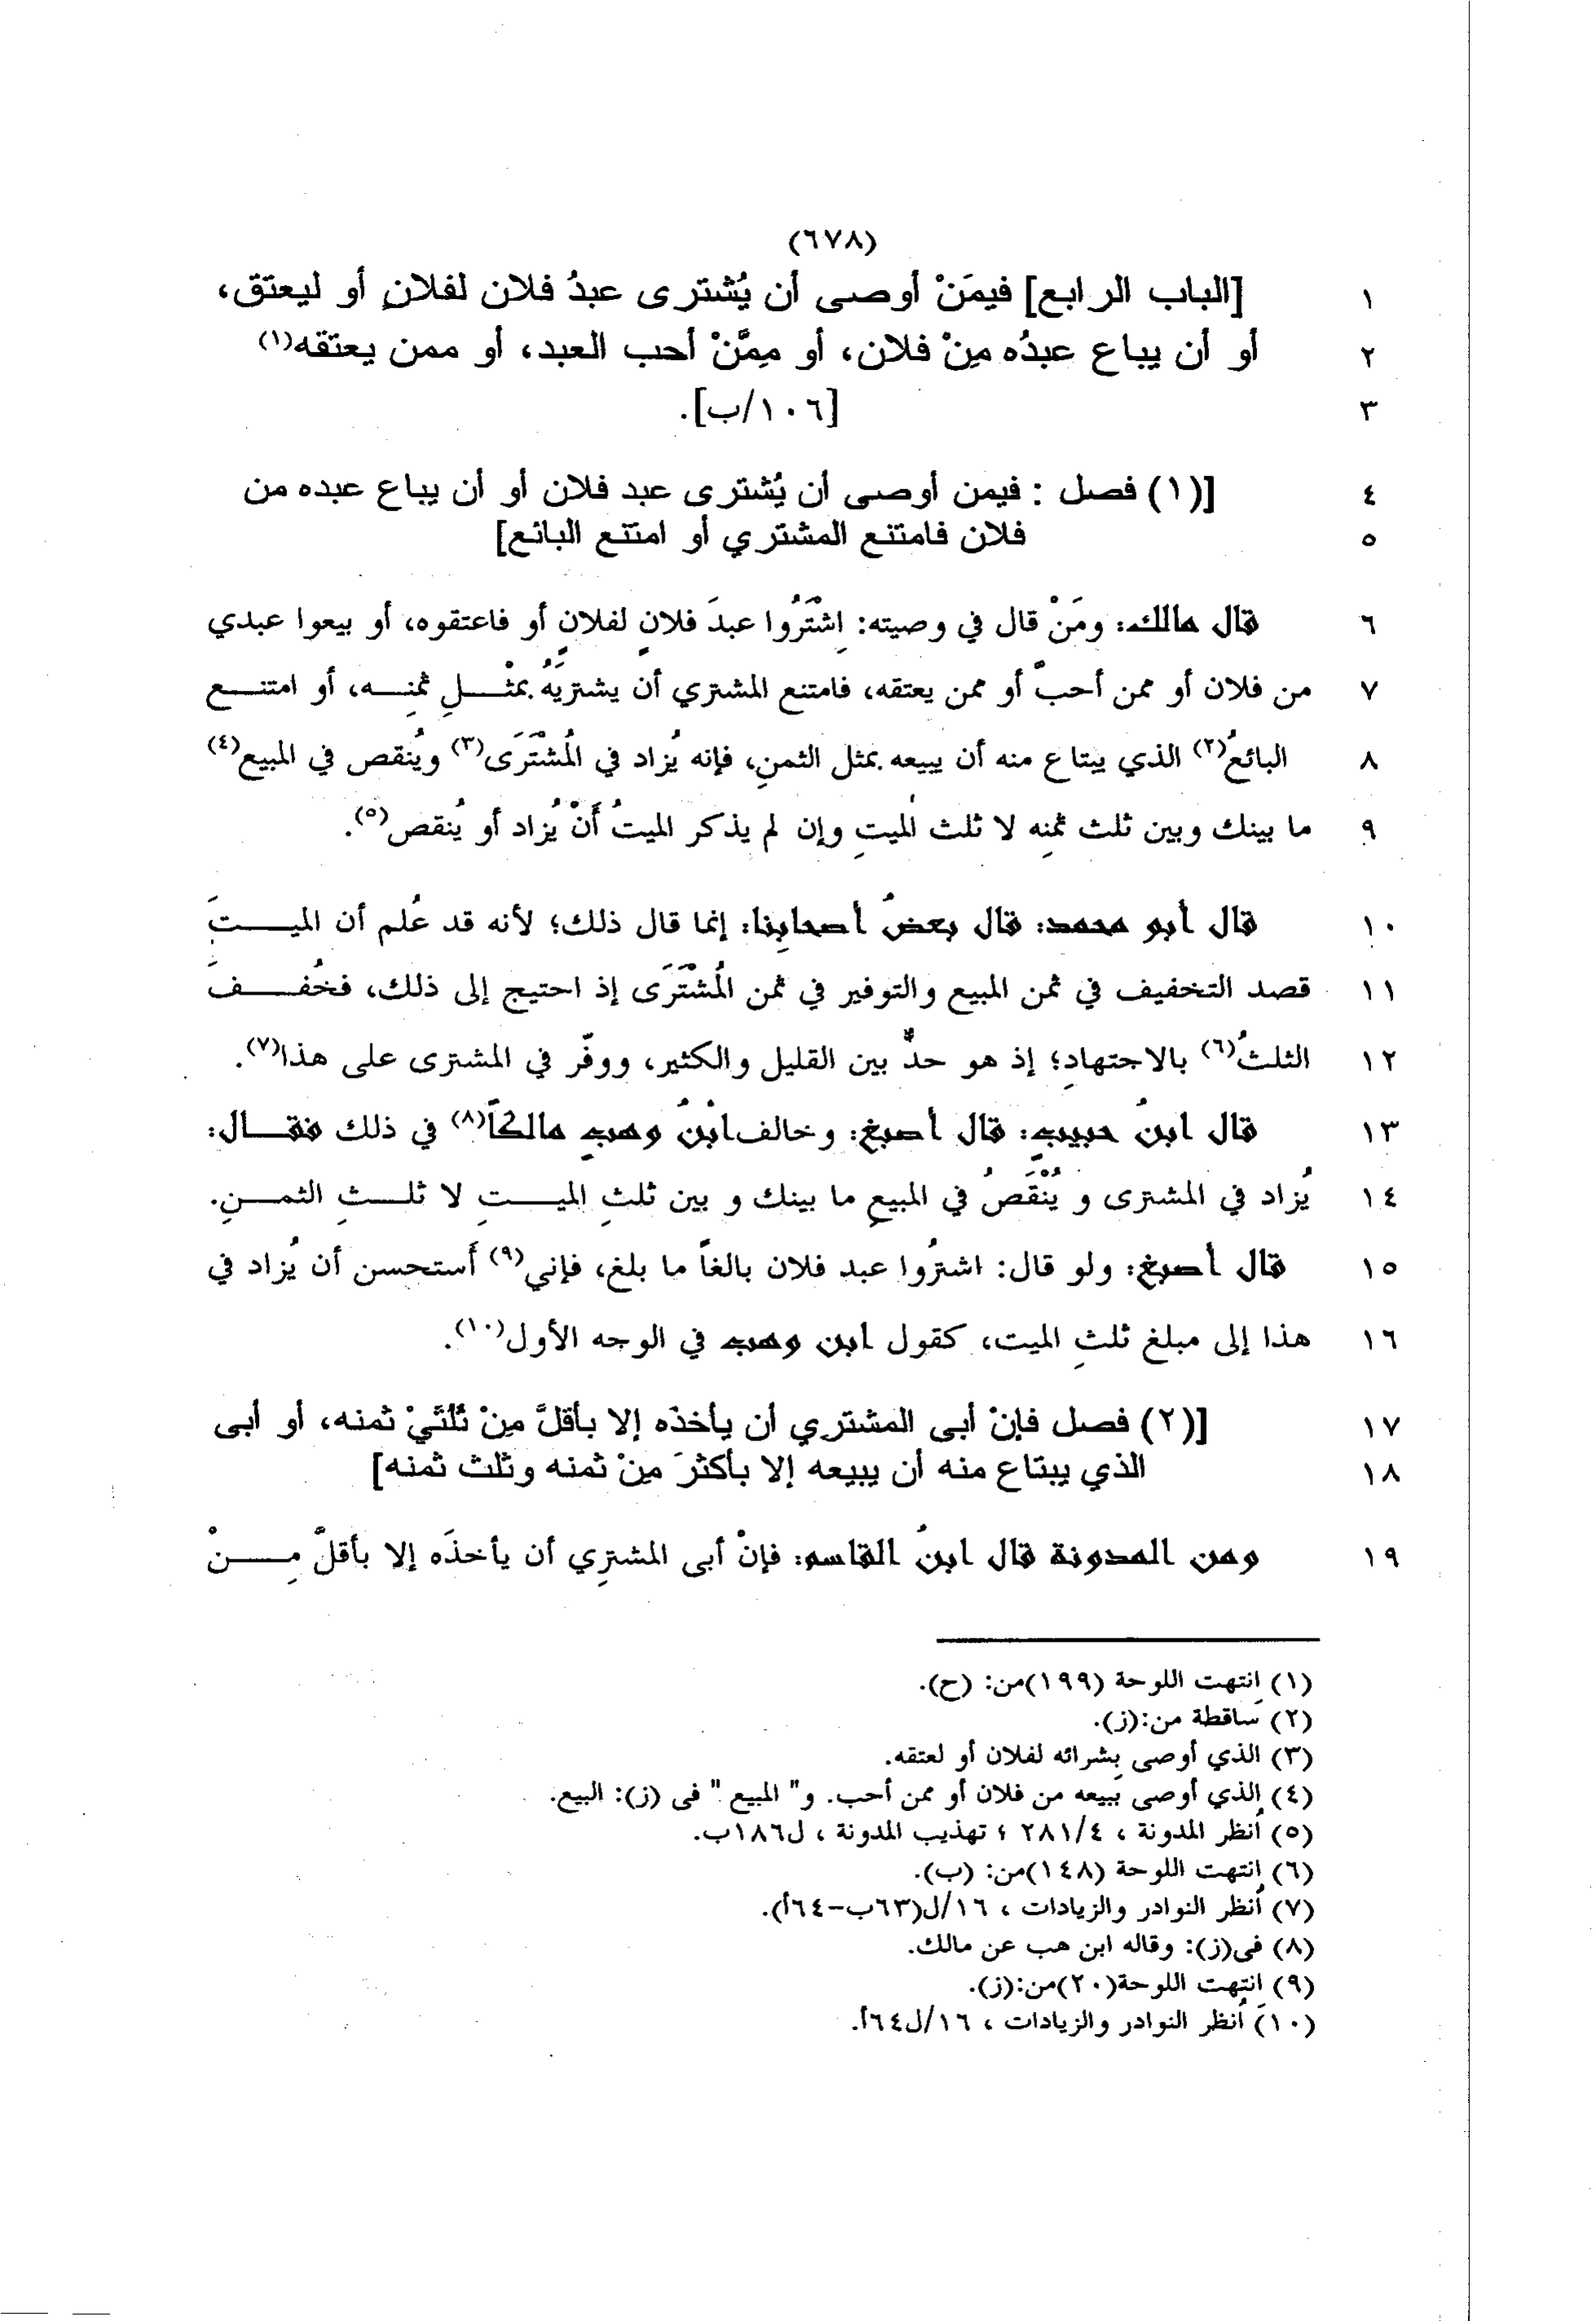 (٦٧٨)
١ [الباب الرابع] فيمَنْ أوصى أن يُشترى عبدُ فلان لفلانٍ أو ليعتق،
٢ أو أن يباع عبدُه مِنْ فلان، أو مِمَّنْ أحب العبد، أو ممن يعتقه(١)
٣ [١٠٦/ب].
٤ [(١) فصل : فيمن أوصى أن يُشترى عبد فلان أو أن يباع عبده من
٥ فلان فامتنع المشتري أو امتنع البائع]
٦ قال مالك: ومَنْ قال في وصيته: اِشْتَرُوا عبدَ فلانٍ لفلانٍ أو فاعتقوه، أو بيعوا عبدي
٧ من فلان أو ممن أحبّ أو ممن يعتقه، فامتنع المشتري أن يشتريَهُ بمثْلِ ثمنِه، أو امتنع
٨ البائعُ(٢) الذي يبتاع منه أن يبيعه بمثل الثمنِ، فإنه يُزاد في المُشْتَرَى(٣) ويُنقص في المبيع(٤)
٩ ما بينك وبين ثلث ثمنِه لا ثلث الميتِ وإن لم يذكر الميتُ أَنْ يُزاد أو يُنقص(٥).
١٠ قال أبو محمد: قال بعضُ أصحابِنا: إنما قال ذلك؛ لأنه قد عُلم أن الميتَ
١١ قصد التخفيف في ثمن المبيع والتوفير في ثمن المُشْتَرَى إذ احتيج إلى ذلك، فخُففَ
١٢ الثلثُ(٦) بالاجتهادِ؛ إذ هو حدٌّ بين القليل والكثير، ووفّر في المشترى على هذا(٧).
١٣ قال ابنُ حبيبٍ: قال أصبغُ: وخالف ابْنُ وهبٍ مالكاً(٨) في ذلك فقال:
١٤ يُزاد في المشترى و يُنْقَصُ في المبيعِ ما بينك و بين ثلثِ الميتِ لا ثلثِ الثمنِ.
١٥ قال أصبغُ: ولو قال: اشترُوا عبد فلان بالغاً ما بلغ، فإني(٩) أَستحسن أن يُزاد في
١٦ هذا إلى مبلغ ثلثِ الميت، كقول ابن وهب في الوجه الأول(١٠).
١٧ [(٢) فصل فإنْ أبى المشتري أن يأخذَه إلا بأقلَّ مِنْ ثُلثَيْ ثمنه، أو أبى
١٨ الذي يبتاع منه أن يبيعه إلا بأكثرَ مِنْ ثمنه وثلث ثمنه]
١٩ ومن المدونة قال ابنُ القاسم: فإنْ أبى المشترِي أن يأخذَه إلا بأقلّ مِنْ
(١) انتهت اللوحة (١٩٩)من: (ح).
(٢) ساقطة من:(ز).
(٣) الذي أوصى بشرائه لفلان أو لعتقه.
(٤) الذي أوصى ببيعه من فلان أو ممن أحب. و" المبيع " فى (ز): البيع.
(٥) اُنظر المدونة ، ٢٨١/٤ ؛ تهذيب المدونة ، ل١٨٦ب.
(٦) انتهت اللوحة (١٤٨)من: (ب).
(٧) اُنظر النوادر والزيادات ، ١٦/ل(٦٣ب-٦٤أ).
(٨) فى(ز): وقاله ابن هب عن مالك.
(٩) انتهت اللوحة(٢٠)من:(ز).
(١٠) اُنظر النوادر والزيادات ، ١٦/ل٦٤أ.